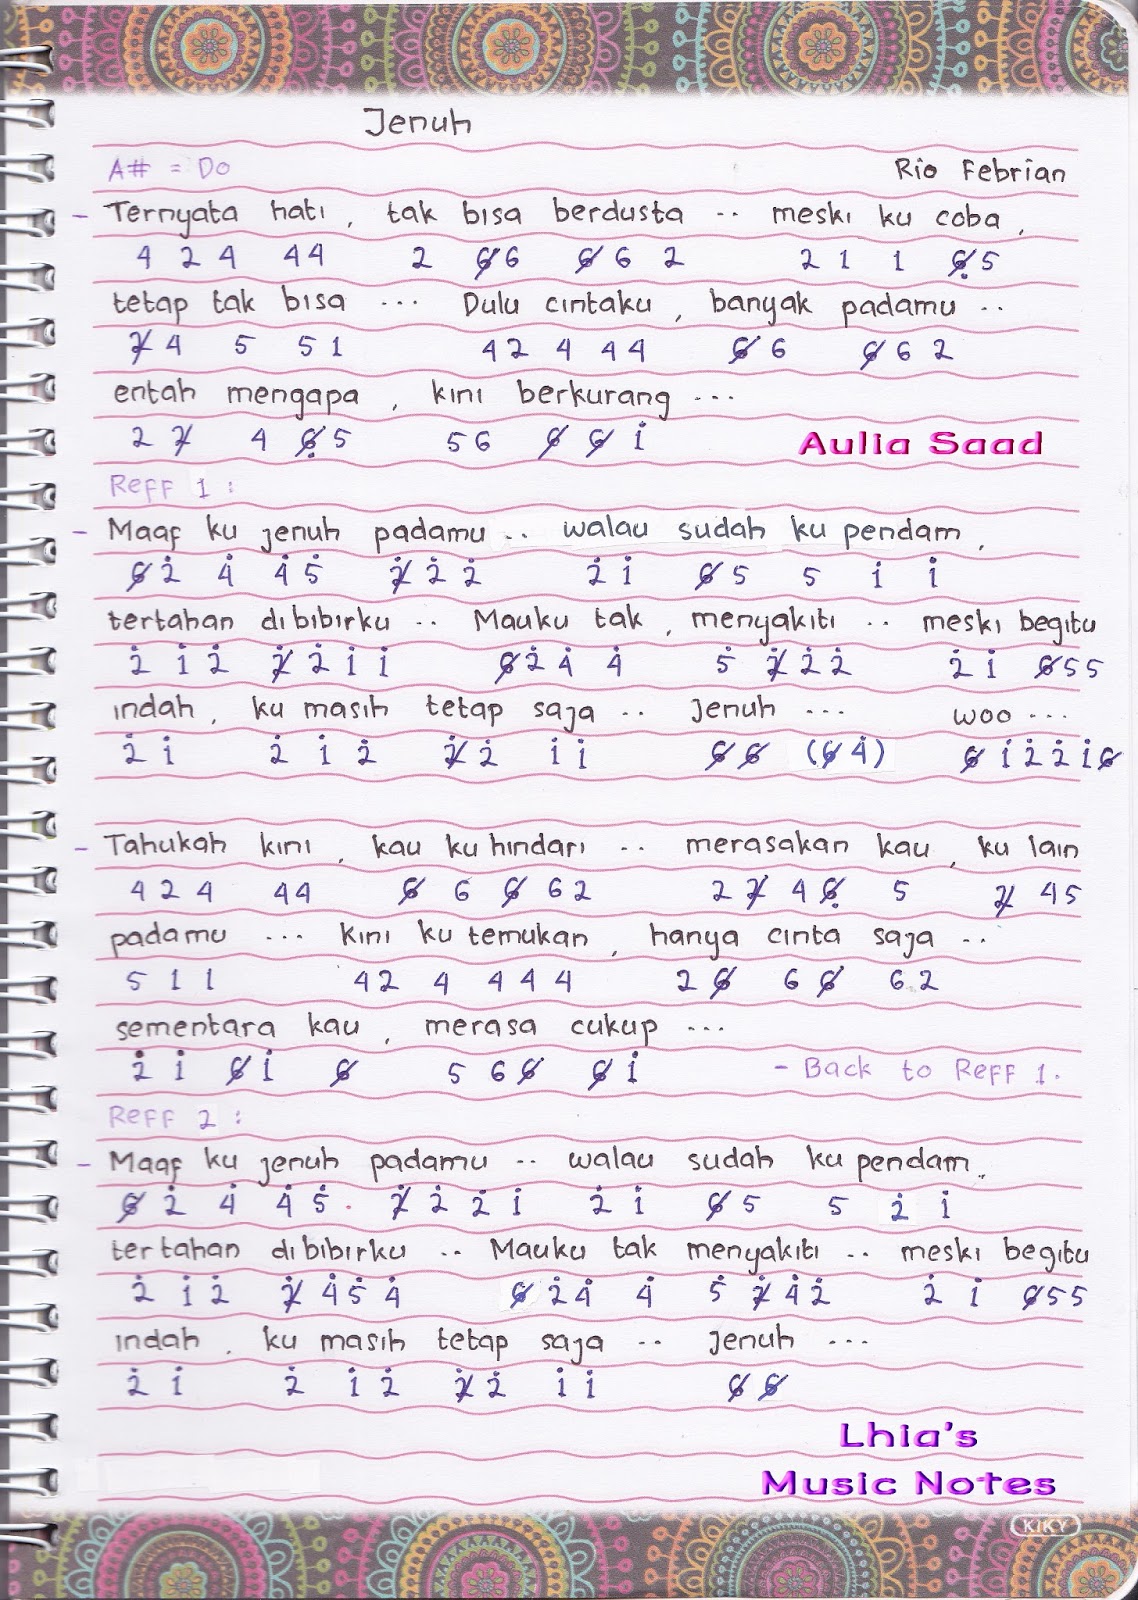 Jenuh
A# = Do Rio Febrian
- Ternyata hati , tak bisa berdusta .. meski ku coba ,
4 2 4 4 4 2 6̸ 6 6̸ 6 2 2 1 1 6̸̣ 5
tetap tak bisa ... Dulu cintaku , banyak padamu ..
2̸ 4 5 5 1 4 2 4 4 4 6̸ 6 6̸ 6 2
entah mengapa , kini berkurang ...
2 2̸ 4 6̸̣ 5 5 6 6̸ 6̸ 1̇ Aulia Saad
Reff 1 :
- Maaf ku jenuh padamu .. walau sudah ku pendam ,
6̸ 2̇ 4̇ 4̇ 5̇ 2̸̇ 2̇ 2̇ 2̇ 1̇ 6̸ 5 5 1̇ 1̇
tertahan dibibirku .. Mauku tak , menyakiti .. meski begitu
2̇ 1̇ 2̇ 2̸̇ 2̇ 1̇ 1̇ 6̸ 2̇ 4̇ 4̇ 5̇ 2̸̇ 2̇ 2̇ 2̇ 1̇ 6̸ 5 5
indah , ku masih tetap saja .. jenuh ... woo ...
2̇ 1̇ 2̇ 1̇ 2̇ 2̸̇ 2̇ 1̇ 1̇ 6̸ 6̸ (6̸ 4̇) 6̸ 1̇ 2̇ 2̇ 1̇ 6̸
- Tahukah kini , kau ku hindari .. merasakan kau , ku lain
4 2 4 4 4 6̸ 6 6̸ 6 2 2 2̸ 4 6̸̣ 5 2̸ 4 5
padamu ... kini ku temukan , hanya cinta saja ..
5 1 1 4 2 4 4 4 4 2 6̸ 6 6̸ 6 2
sementara kau , merasa cukup ...
2̇ 1̇ 6̸ 1̇ 6̸ 5 6 6̸ 6̸ 1̇ - Back to Reff 1.
Reff 2 :
- Maaf ku jenuh padamu .. walau sudah ku pendam ,
6̸ 2̇ 4̇ 4̇ 5̇ . 2̸̇ 2̇ 2̇ 1̇ 2̇ 1̇ 6̸ 5 5 2̇ 1̇
tertahan dibibirku .. Mauku tak menyakiti .. meski begitu
2̇ 1̇ 2̇ 2̸̇ 4̇ 5̇ 4̇ 6̸ 2̇ 4̇ 4̇ 5̇ 2̸̇ 4̇ 2̇ 2̇ 1̇ 6̸ 5 5
indah , ku masih tetap saja .. jenuh ...
2̇ 1̇ 2̇ 1̇ 2̇ 2̸̇ 2̇ 1̇ 1̇ 6̸ 6̸
Lhia's
Music Notes
KIKY